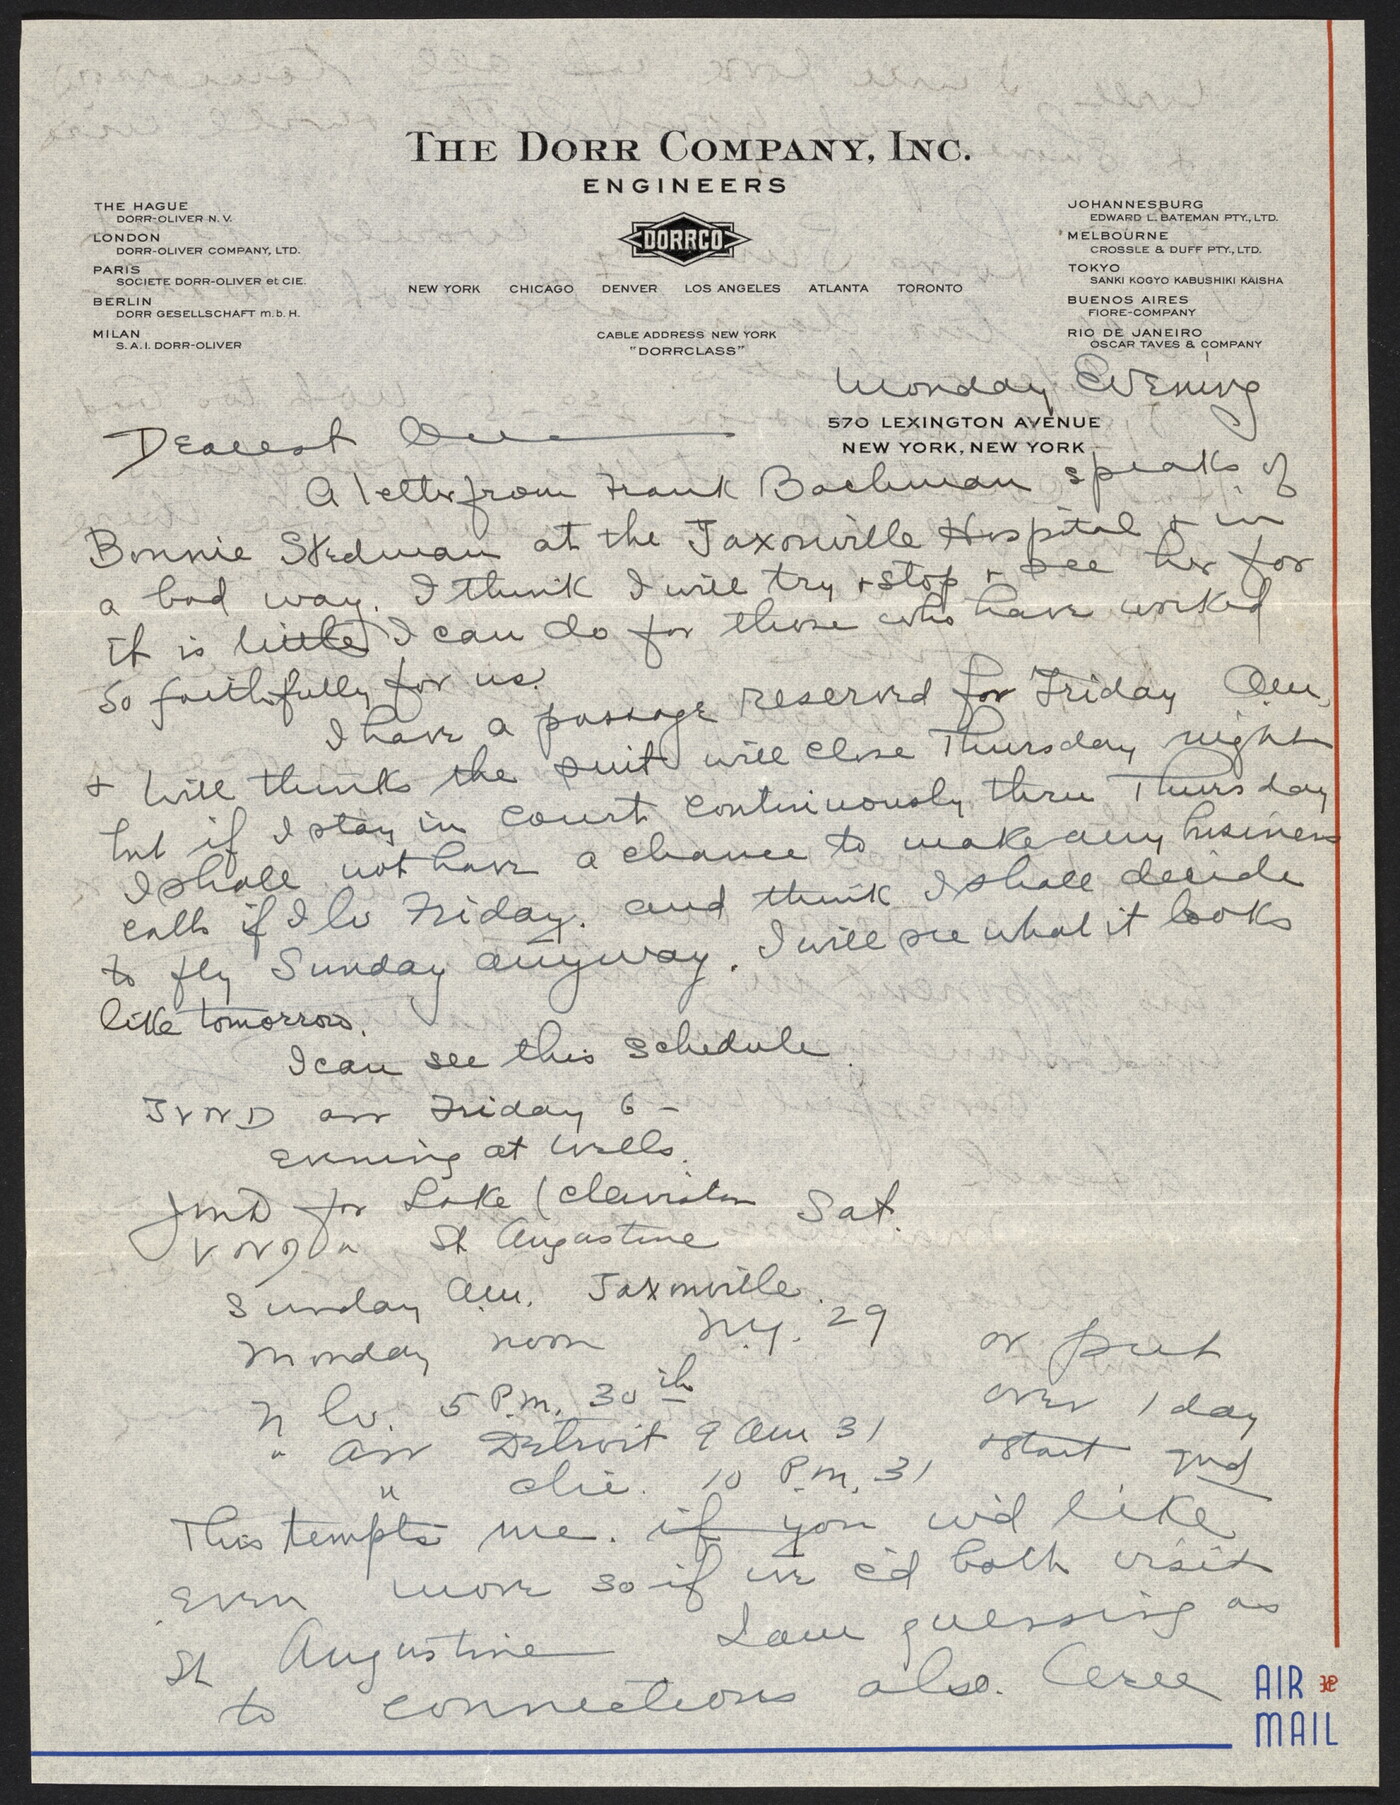 THE DORR COMPANY, INC.
ENGINEERS
THE HAGUE
DORR-OLIVER N. V.
LONDON
DORR-OLIVER COMPANY, LTD.
PARIS
SOCIETE DORR-OLIVER et CIE.
BERLIN
DORR GESELLSCHAFT m. b. H.
MILAN
S. A. I. DORR-OLIVER
DORRCO
NEW YORK CHICAGO DENVER LOS ANGELES ATLANTA TORONTO
CABLE ADDRESS NEW YORK
"DORRCLASS"
JOHANNESBURG
EDWARD L. BATEMAN PTY., LTD.
MELBOURNE
CROSSLE & DUFF PTY., LTD.
TOKYO
SANKI KOGYO KABUSHIKI KAISHA
BUENOS AIRES
FIORE-COMPANY
RIO DE JANEIRO
OSCAR TAVES & COMPANY
Monday Evening
570 LEXINGTON AVENUE
NEW YORK, NEW YORK
Dearest
A letter from Frank Bachman speaks of
Bonnie Stedman at the Jaxonville Hospital & in
a bad way. I think I will try & stop & see her for
it is little I can do for those who have worked
so faithfully for us.
I have a passage reserved for Friday Am,
& Will thinks the suit will close Thursday night
but if I stay in court continuously thru Thursday
I shall not have a chance to make any business
calls if I lv Friday. and think I shall decide
to fly Sunday anyway. I will see what it looks
like tomorrow.
I can see this schedule.
JVND arr Friday 6 -
evening at Wells.
JVND for Lake (Clewiston Sat.
VND " St Augustine
Sunday Am. Jaxonville.
Monday noon N.Y. 29
lv. 5 P.M. 30th
" arr Detroit 9 Am 31
" Chi. 10 P.M. 31
or put
over 1 day
& start 2nd
This tempts me. if you w'd like
even more so if we c'd both visit
St Augustine I am guessing as
to connections also.
AIR
MAIL